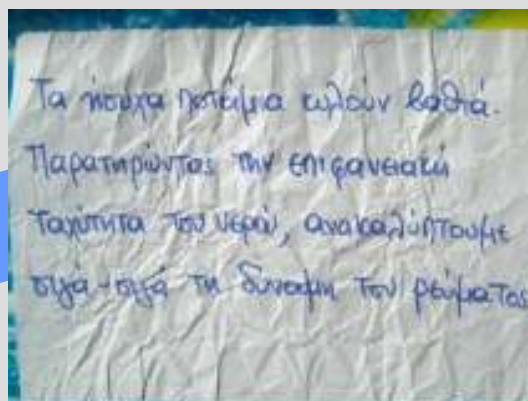 Τα ήσυχα ποτάμια κυλούν βαθιά.
Παρατηρώντας την επιφανειακή
ταχύτητα του νερού, ανακαλύπτουμε
σιγά-σιγά τη δύναμη του ρεύματος